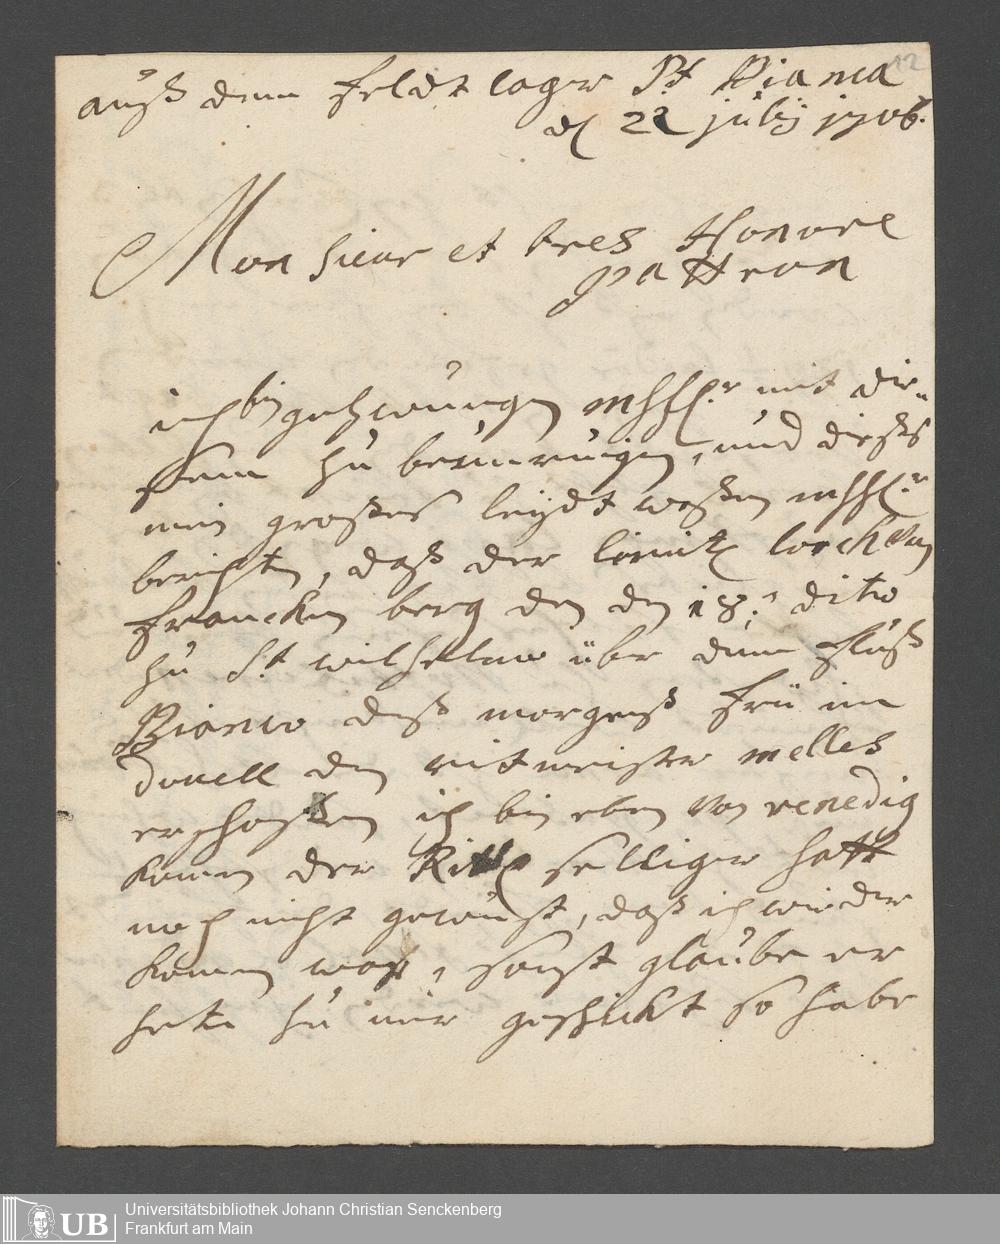 12
auß dem feldt lager St Bianca
d 22 julij 1706.
Monsieur et tres Honore
pattron
ich bin gezwüngen mhhl. mit die-
sem zu beunrüigen, und dießes
mein großes leydt weßen mhhl.
berichten, daß der lorch von
francken berg den 18. dito
zu St wilhelmo über dem fluß
Bianco deß morgenß früi im
douell den ritmeister melles
erschoßen ich bin eben von venedig
komen der Ritt selliger hatt
noch nicht gewüst, daß ich wieder
komen war, sonst glaube er
hete zu mir geschickt so habe
UB
Universitätsbibliothek Johann Christian Senckenberg
Frankfurt am Main